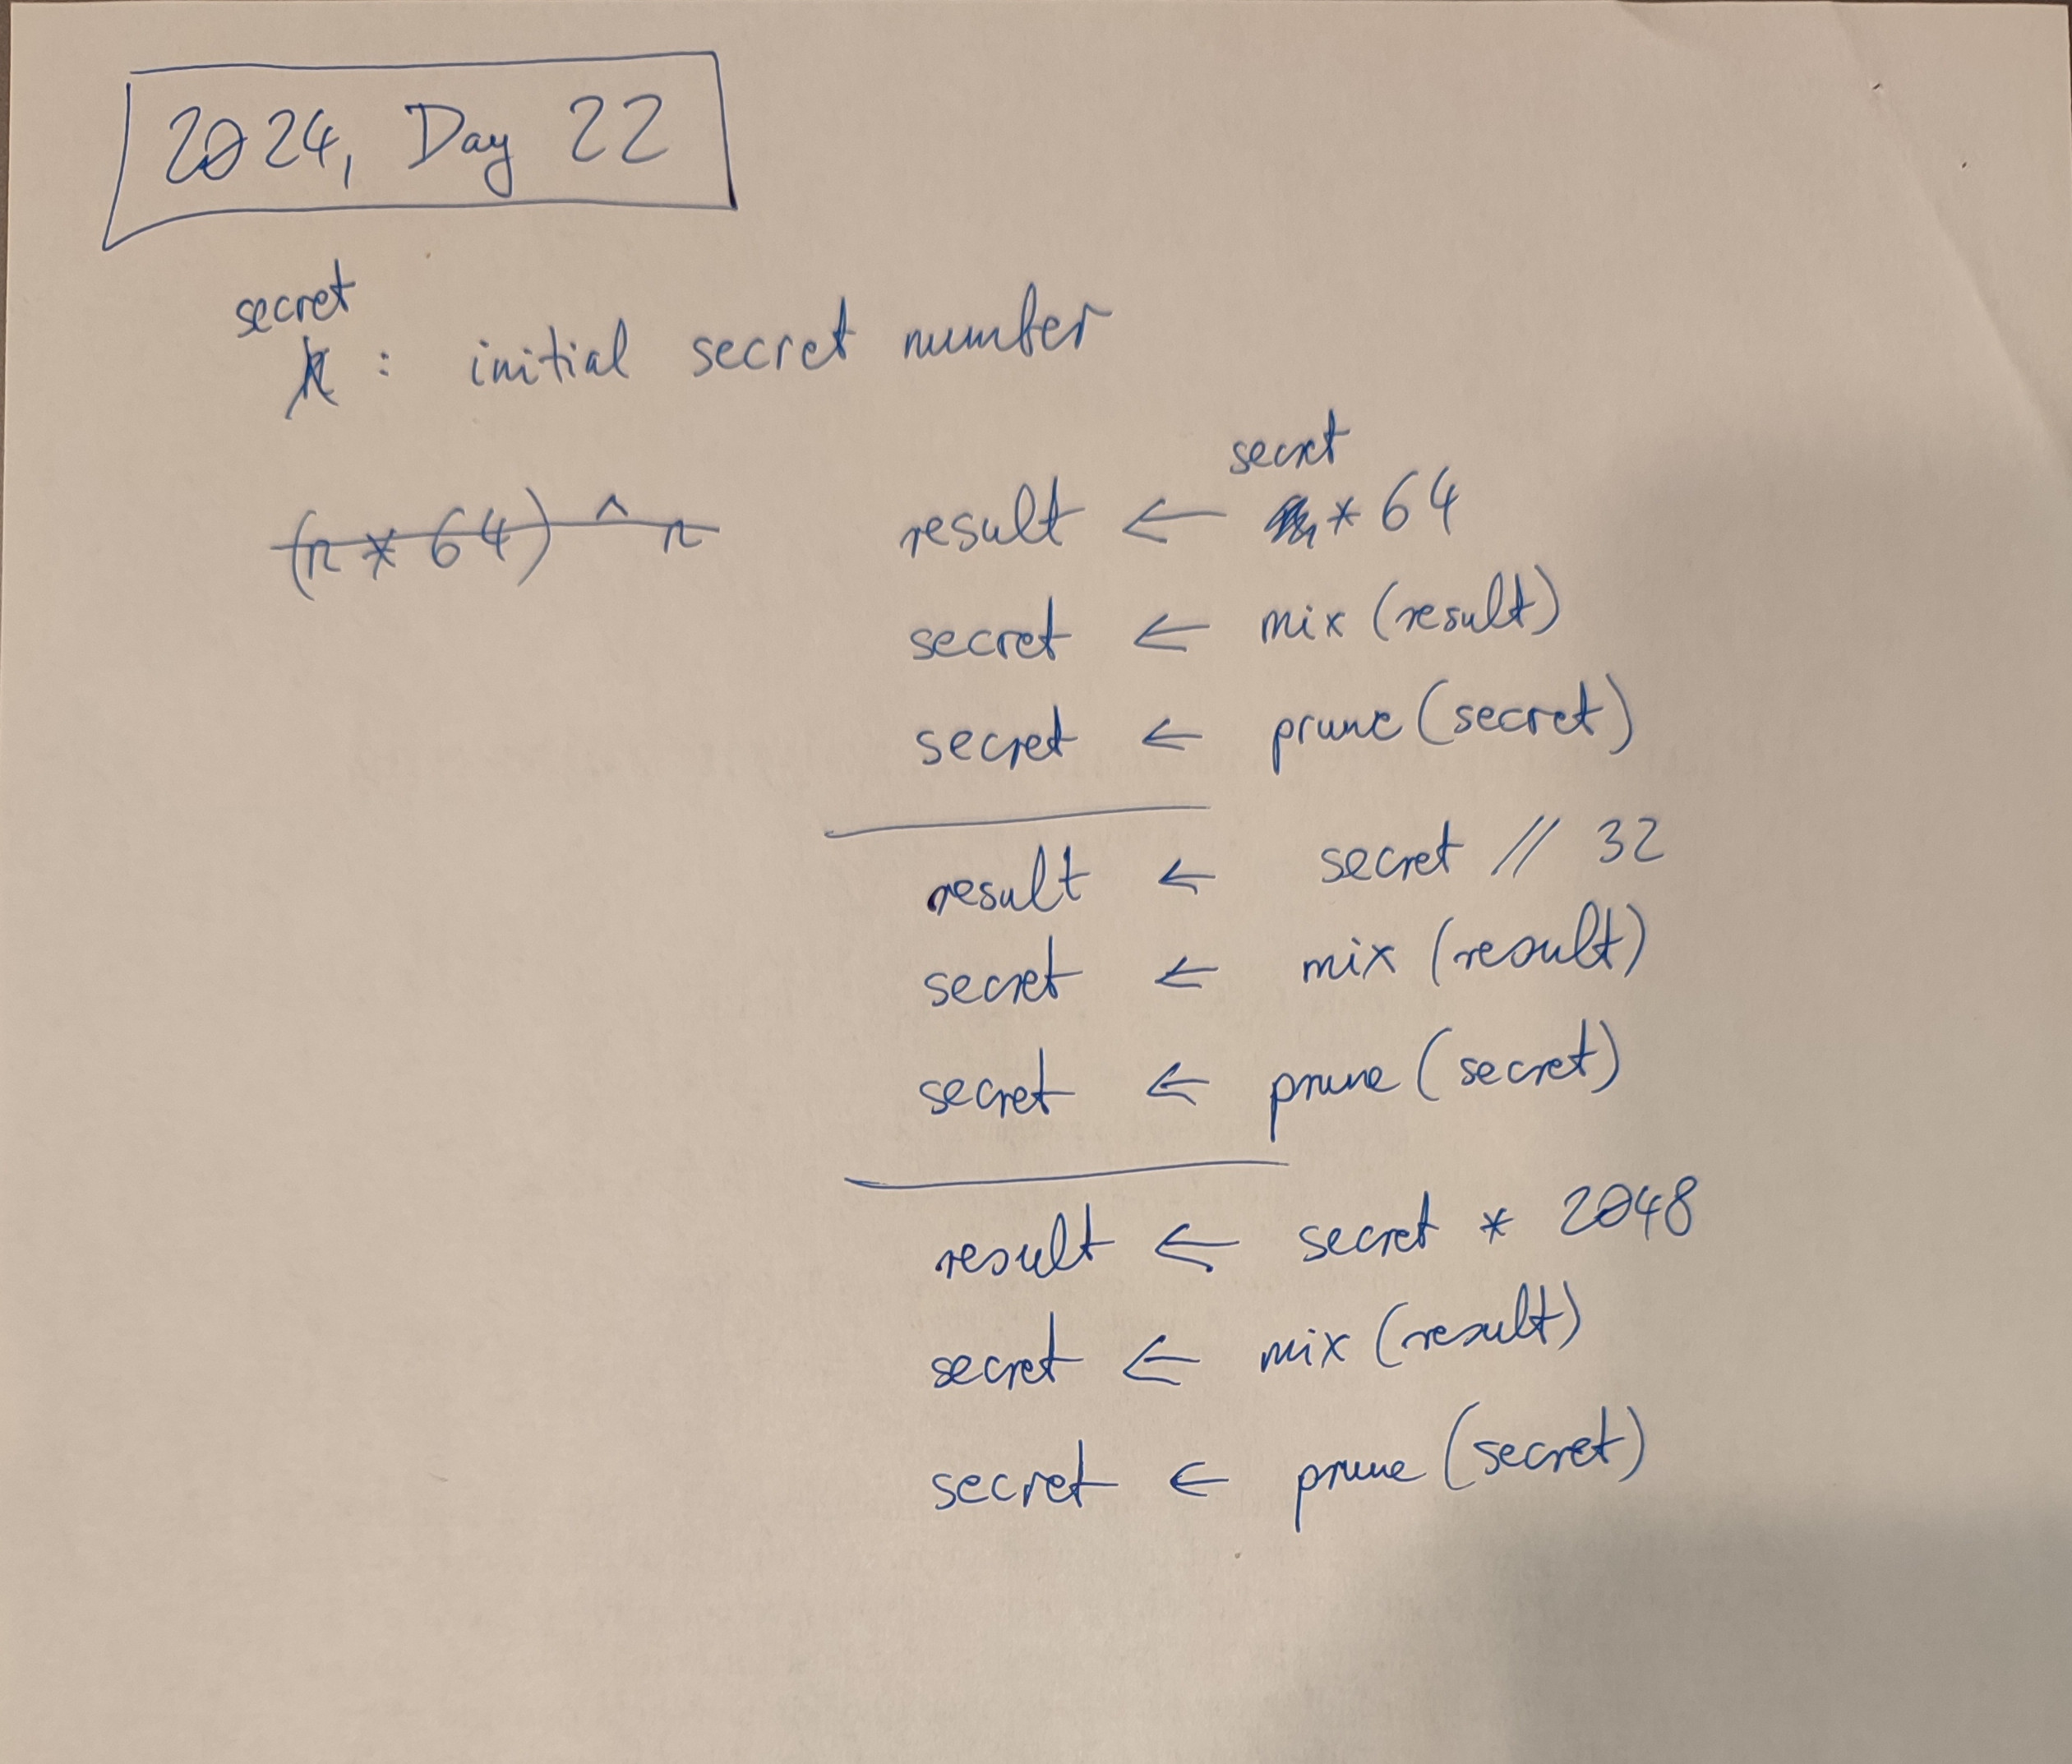 2024, Day 22
secret
n : initial secret number
(n * 64) ^ n
secret
result ← * 64
secret ← mix (result)
secret ← prune (secret)
result ← secret // 32
secret ← mix (result)
secret ← prune (secret)
result ← secret * 2048
secret ← mix (result)
secret ← prune (secret)